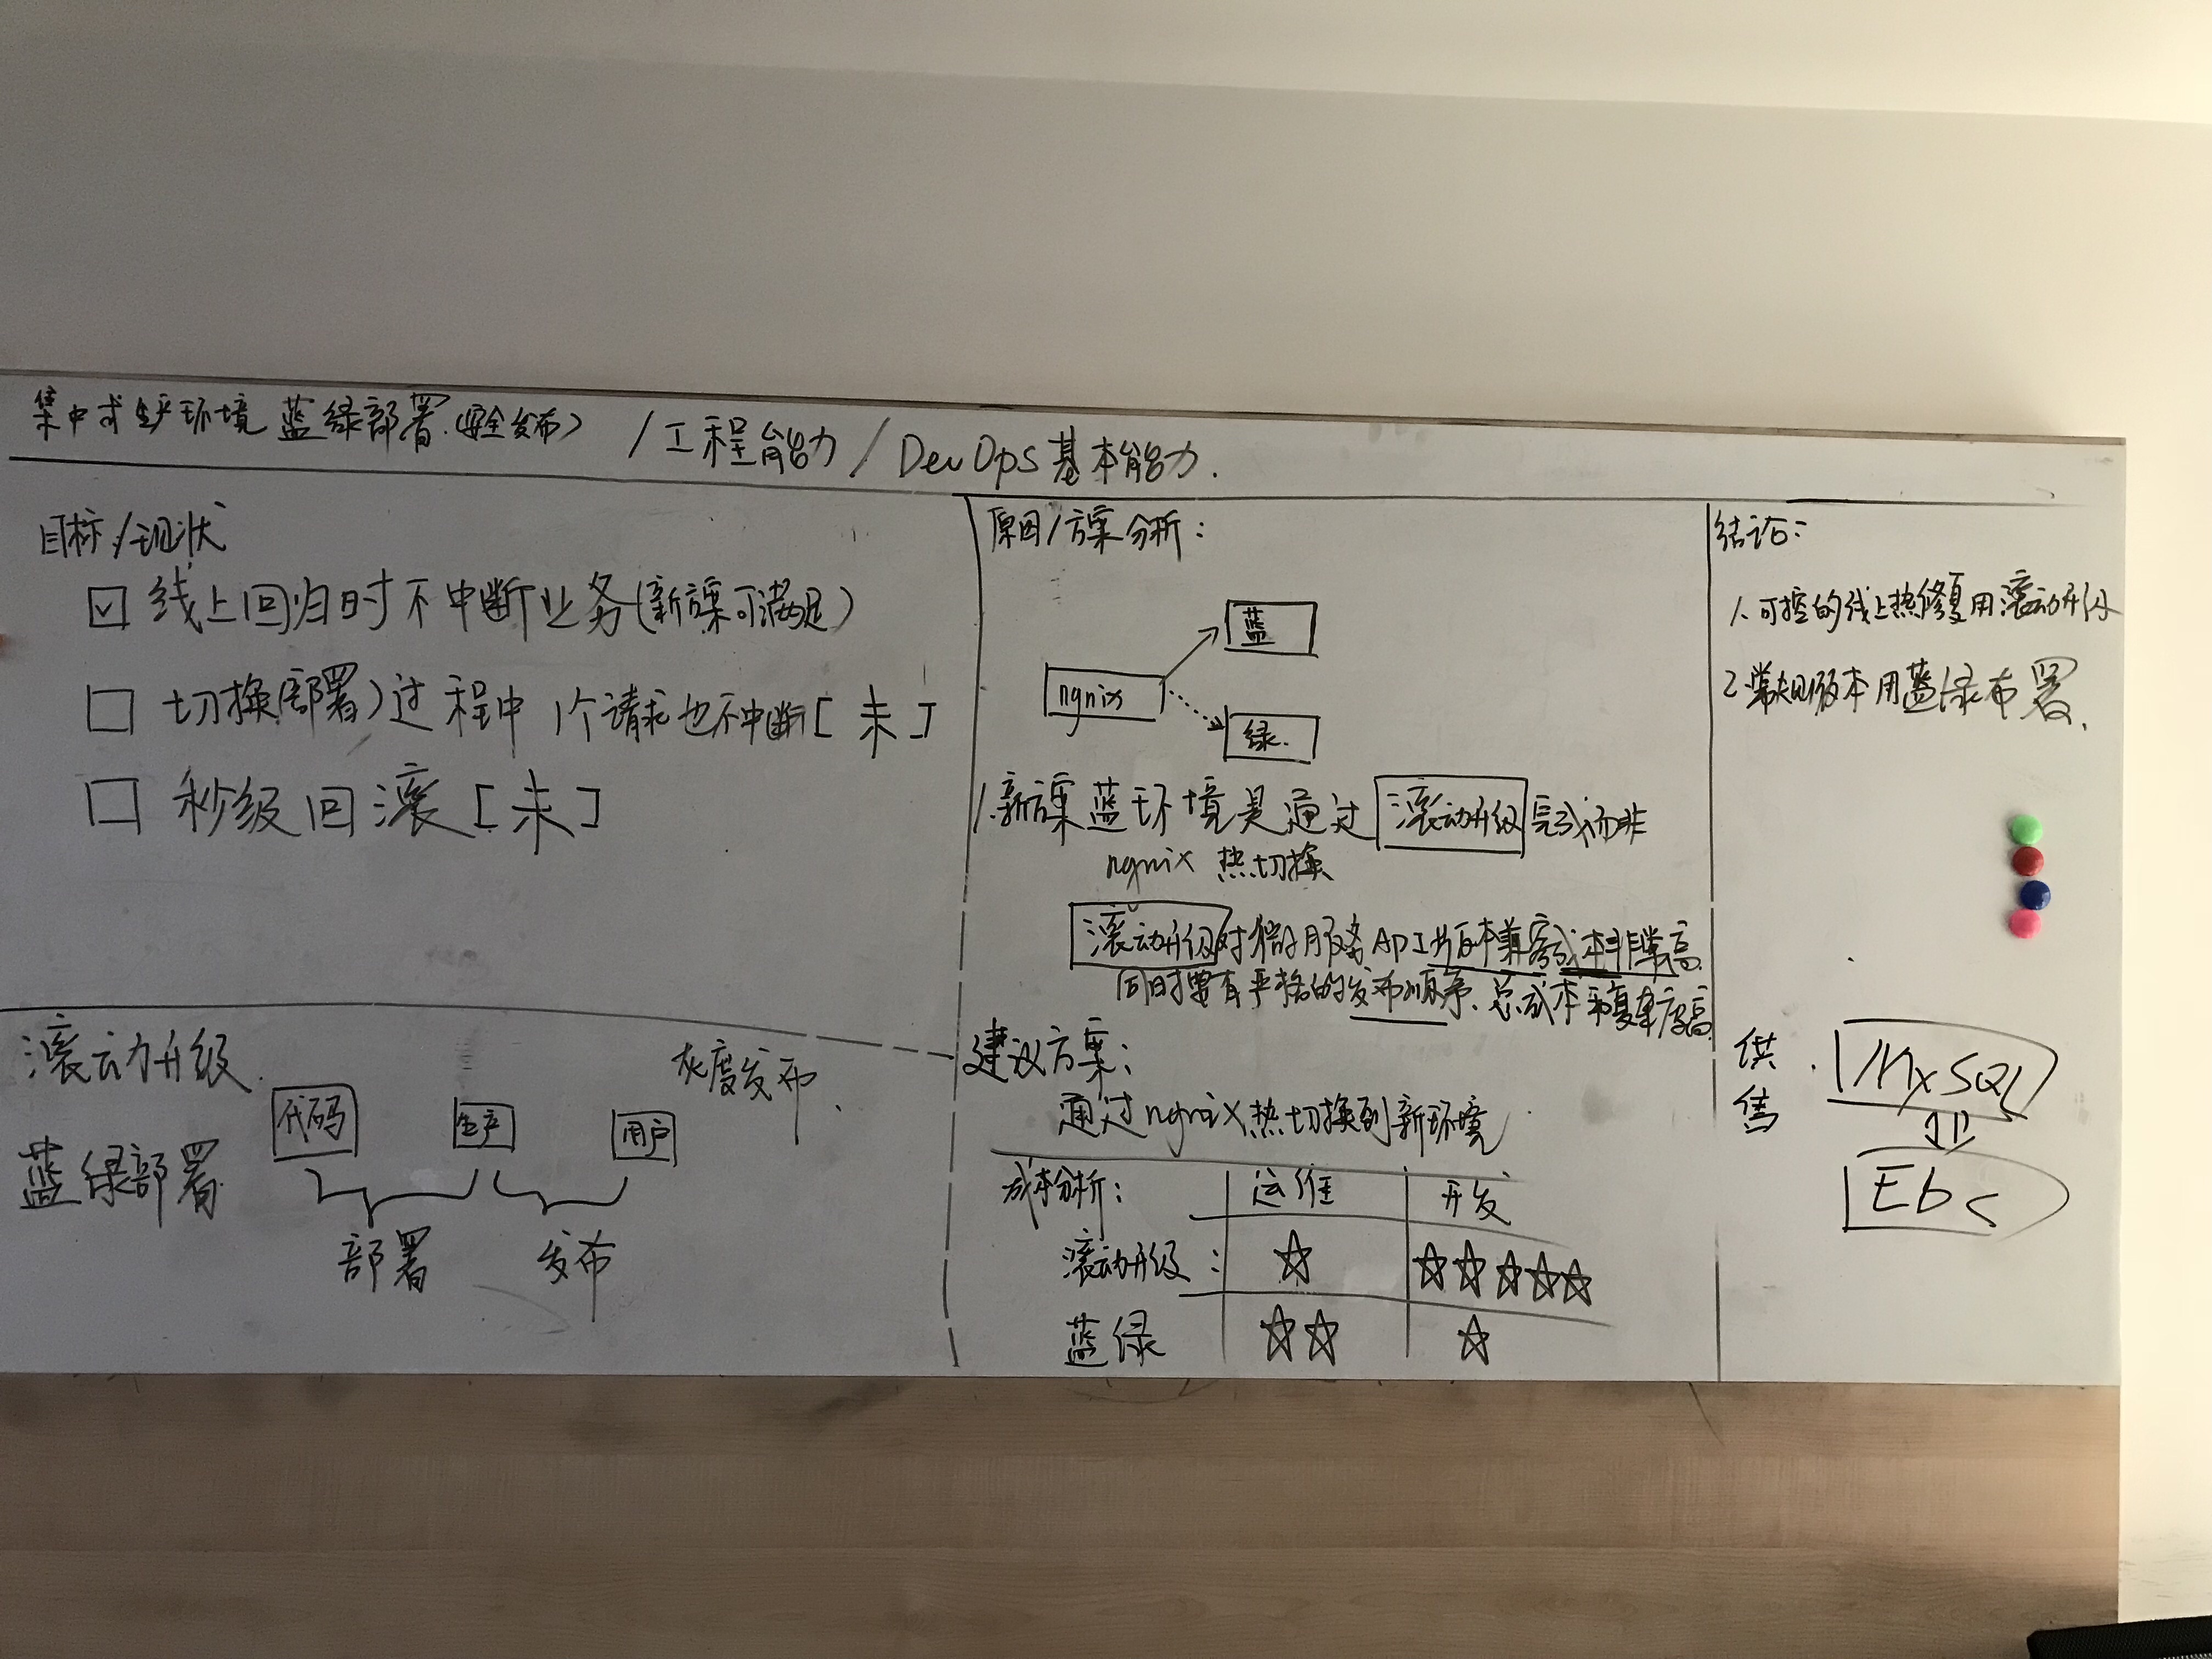 集中式生产环境 蓝绿部署(安全发布) /工程能力/DevOps基本能力.
目标/现状
线上回归时不中断业务(新方案可满足)
切换(部署)过程中 1个请求也不中断[未]
秒级回滚[未]
滚动升级
蓝绿部署
灰度发布
代码
生产
用户
部署
发布
原因/方案分析:
蓝
ngnix
绿
1.新方案蓝环境是通过滚动升级完成而非
ngnix 热切换
滚动升级对微服务API 版本兼容成本非常高
同时要有严格的发布顺序.总成本和复杂度高
建议方案:
通过ngnix热切换到新环境
成本分析: 运维 开发
滚动升级: ☆ ☆☆☆☆☆
蓝绿 ☆☆ ☆
结论:
1.可控的线上热修复用滚动升级
2.常规版本用蓝绿布署.
MySQL
Ebs